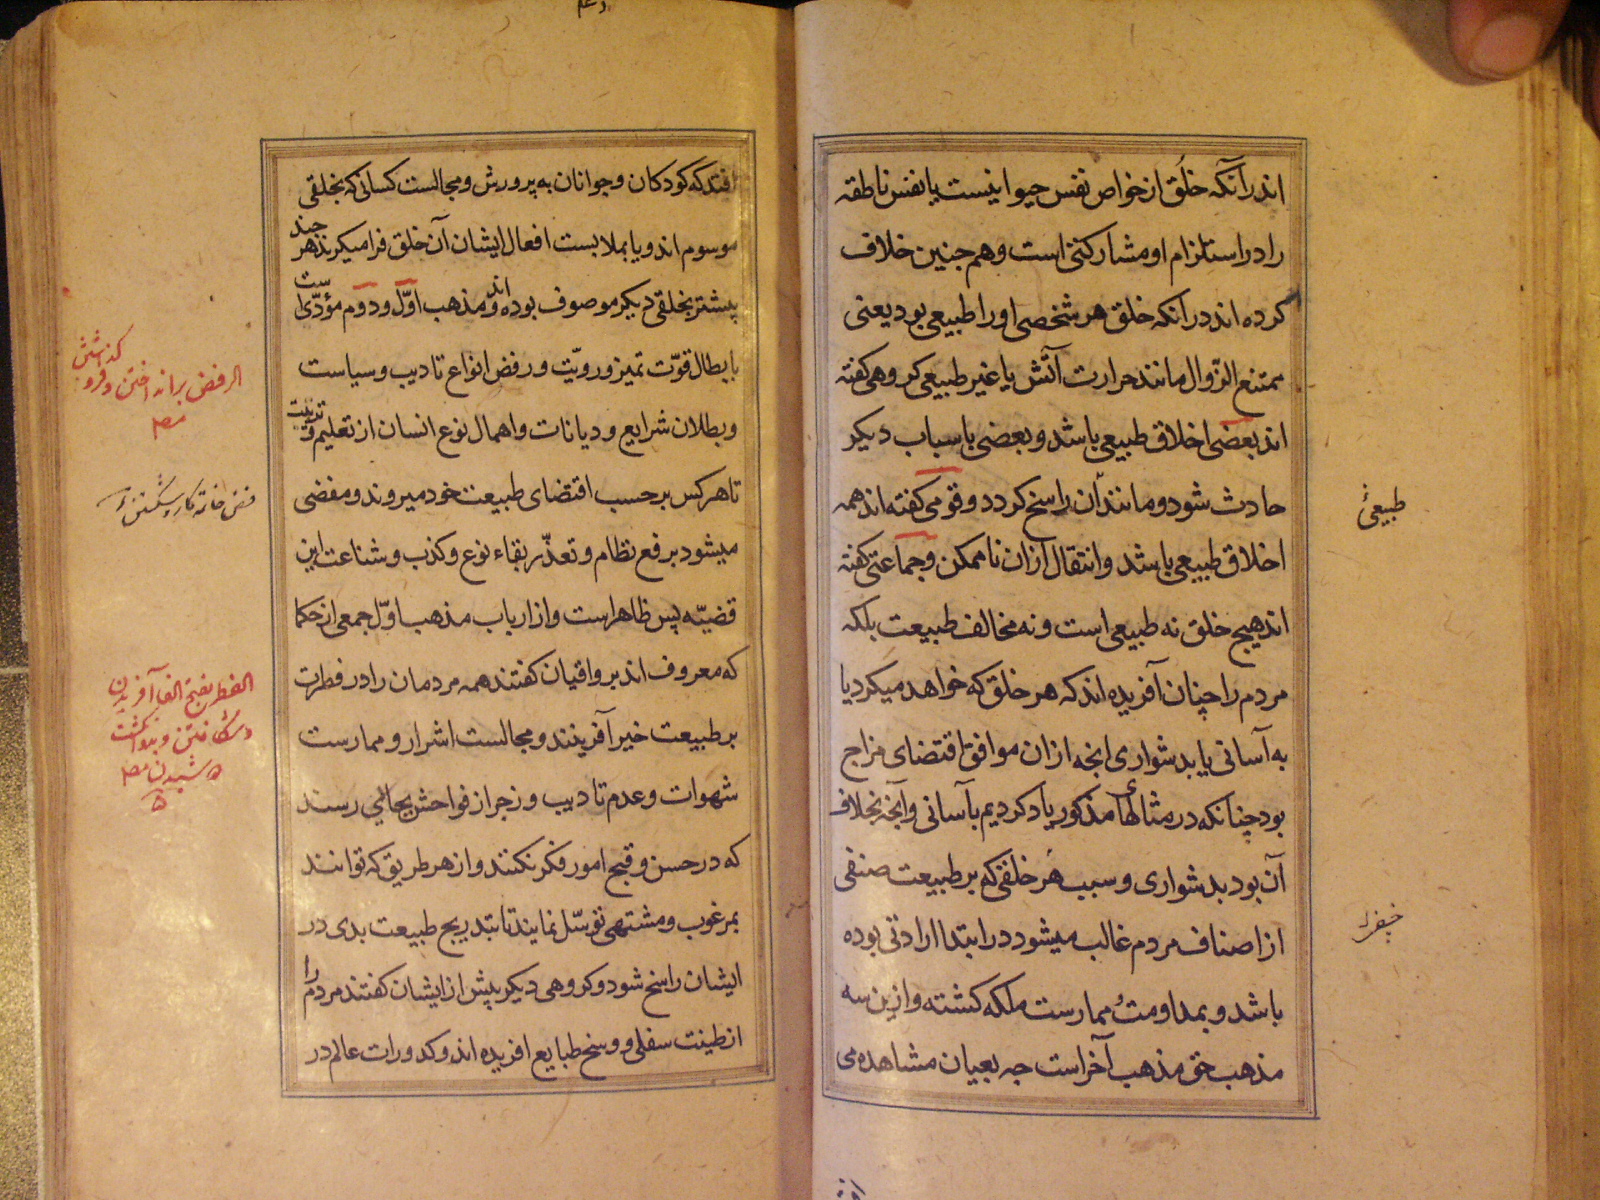 اند در آنکه خلق از خواص نفس حیوانیست یا نفس ناطقه
را در استلزام او مشارکتی است و هم چنین خلاف
کرده اند در آنکه خلق هر شخصی او را طبیعی بود یعنی
ممتنع الزّوال مانند حرارت آتش یا غیر طبیعی کروهی کفته
اند بعضی اخلاق طبیعی باشد و بعضی باسباب دیکر
حادث شود و مانند آن راسخ کردد و قومی کفته اند همه
اخلاق طبیعی باشد و انتقال ازان ناممکن و جماعتی کفته
اند هیچ خلق نه طبیعی است و نه مخالف طبیعت بلکه
مردم را چنان آفریده اند که هر خلق که خواهد میکرد یا
به آسانی یا بدشواری انچه ازان موافق اقتضای مزاج
بود چنانکه در مثالهای مذکور یاد کردیم بآسانی و آنچه بخلاف
آن بود بدشواری و سبب هر خلقی که بر طبیعت صنفی
از اصناف مردم غالب میشود در ابتدا ارادتی بوده
باشد و بمداومت ممارست ملکه کشته و ازین سه
مذهب حق مذهب آخر است چه بعیان مشاهده می
طبیعی
افتد که کودکان و جوانان به پرورش و مجالست کسانی که بخلقی
موسوم اند و یا بملابست افعال ایشان آن خلق فرا میکرند هر چند
پیشتر بخلقی دیکر موصوف بوده اند و مذهب اوّل و دوم مؤدّی است
بابطال قوّت تمیز و رویّت و رفض انواع تادیب و سیاست
و بطلان شرایع و دیانات و اهمال نوع انسان از تعلیم و تربیت
تا هر کس بر حسب اقتضای طبیعت خود میروند و مفضی
میشود برفع نظام و تعذّر بقاء نوع و کذب و شناعت این
قضیّه پس ظاهر است و از ارباب مذهب اوّل جمعی از حکما
که معروف اند برواقیان کفتند همه مردمان را در فطرت
بر طبیعت خیر آفرینند و مجالست اشرار و ممارست
شهوات و عدم تادیب و زجر از فواحش بجائی رسند
که در حسن و قبح امور فکر نکنند و از هر طریق که توانند
بمرغوب و مشتهی توسّل نمایند تا بتدریج طبیعت بدی در
ایشان راسخ شود و کروهی دیکر پیش از ایشان کفتند مردم را
از طینت سفلی و وسخ طبایع افریده اند و کدورات عالم در
الرفض برانداختن و فرو کذاشتن
الفطر بفتح الفا آفریدن
و شکافتن و بدو انکشت
دوشیدن